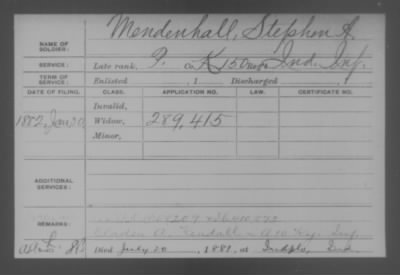 Mendenhall, Stephen A.
NAME OF SOLDIER:
SERVICE: Late rank, P. Co. K, 150 Reg't Ind. Inf.
TERM OF SERVICE: Enlisted , 1 Discharged , 1
DATE OF FILING. CLASS. APPLICATION NO. LAW. CERTIFICATE NO.
Invalid,
1882, Jan 20 Widow, 289,415
Minor,
ADDITIONAL SERVICES:
REMARKS: A. Kendall - A 10 Ky. Inf.
Died July 20, 1881, at Indpls, Ind.